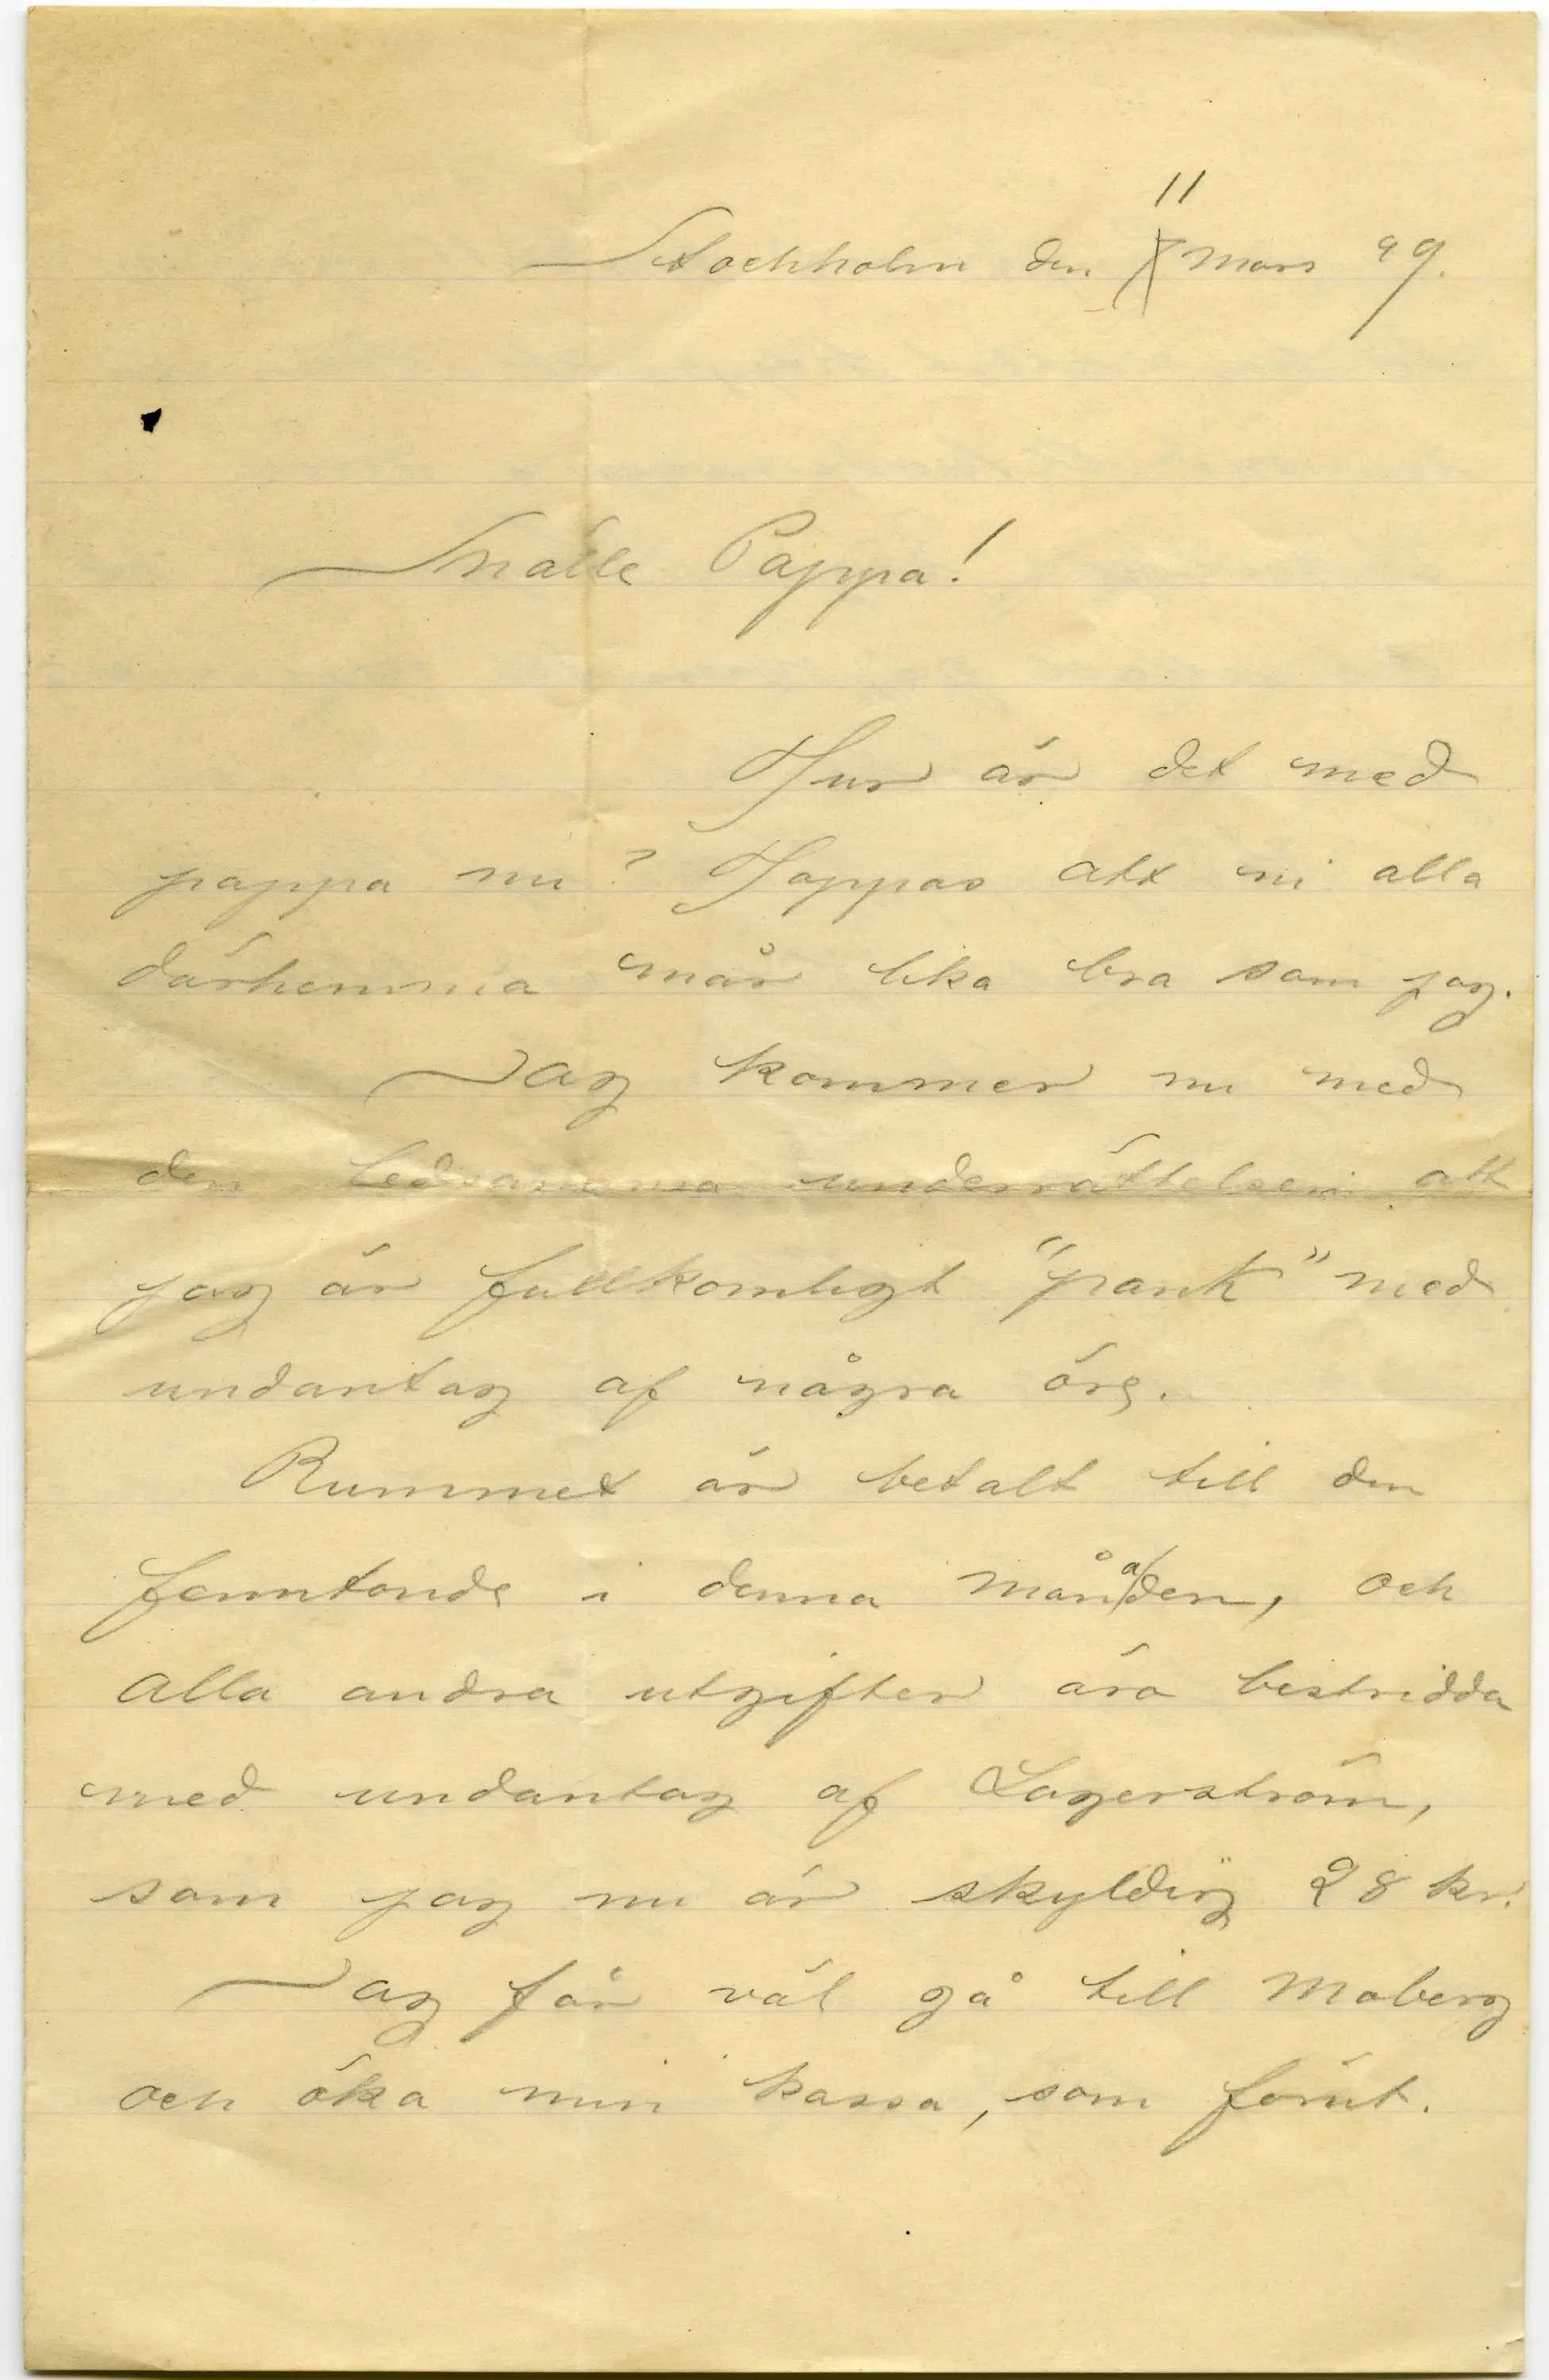 Stockholm den 11 Mars 99.
Snälle Pappa!
Hur är det med
pappa nu? Hoppas att ni alla
därhemma mår lika bra som jag.
Jag kommer nu med
den ledsamma underrättelsen att
jag är fullkomligt "pank" med
undantag af några öre.
Rummet är betalt till den
femtonde i denna månaden, och
alla andra utgifter äro bestridda
med undantag af Lagerström,
som jag nu är skyldig 28 kr.
Jag får väl gå till Moberg
och öka min kassa, som förut.